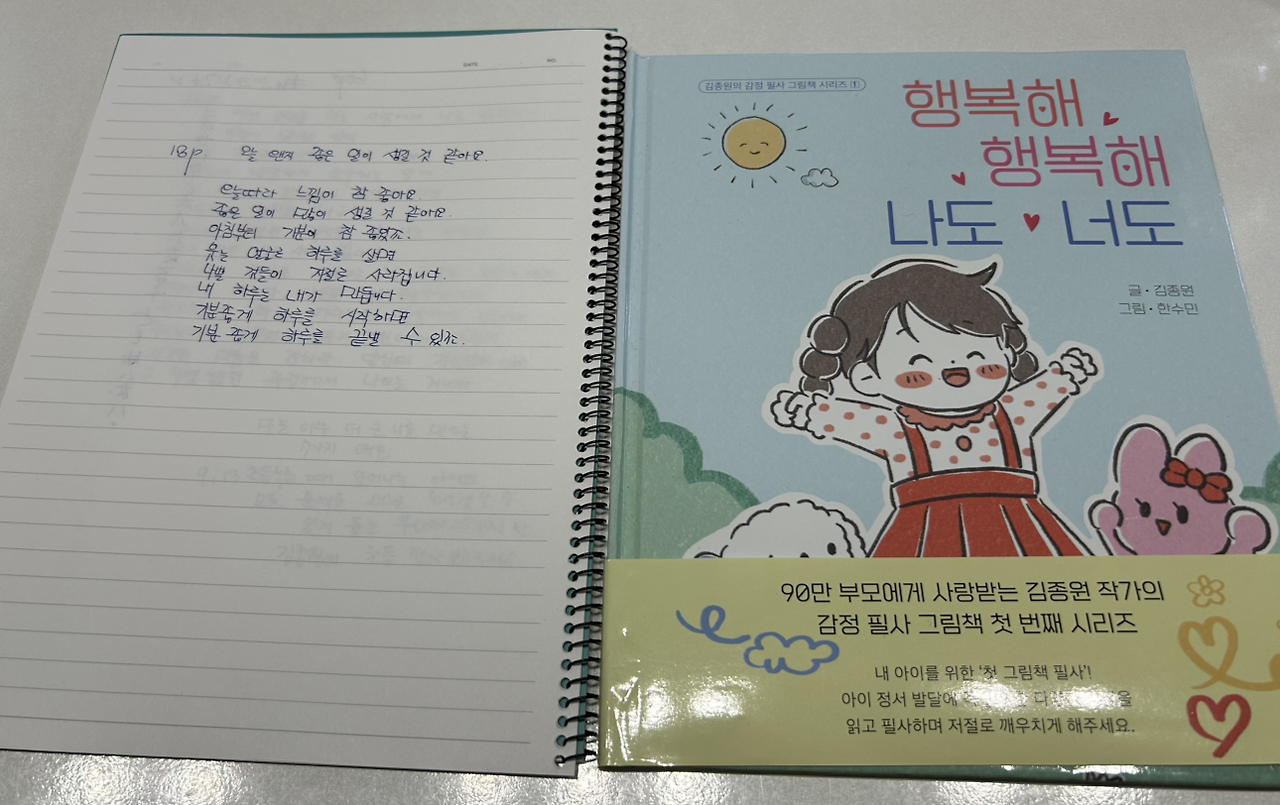 DATE NO.
18p. 오늘 왠지 좋은 일이 생길 것 같아요.
오늘따라 느낌이 참 좋아요.
좋은 일이 많이 생길 것 같아요.
아침부터 기분이 참 좋았죠.
웃는 얼굴로 하루를 살면
나쁜 것들이 저절로 사라집니다.
내 하루는 내가 만듭니다.
기분좋게 하루를 시작하면
기분 좋게 하루를 끝낼 수 있죠.
김종원의 감정 필사 그림책 시리즈 1
행복해
행복해
나도 너도
글·김종원
그림·한수민
90만 부모에게 사랑받는 김종원 작가의
감정 필사 그림책 첫 번째 시리즈
내 아이를 위한 '첫 그림책 필사'!
아이 정서 발달에
읽고 필사하며 저절로 깨우치게 해주세요.